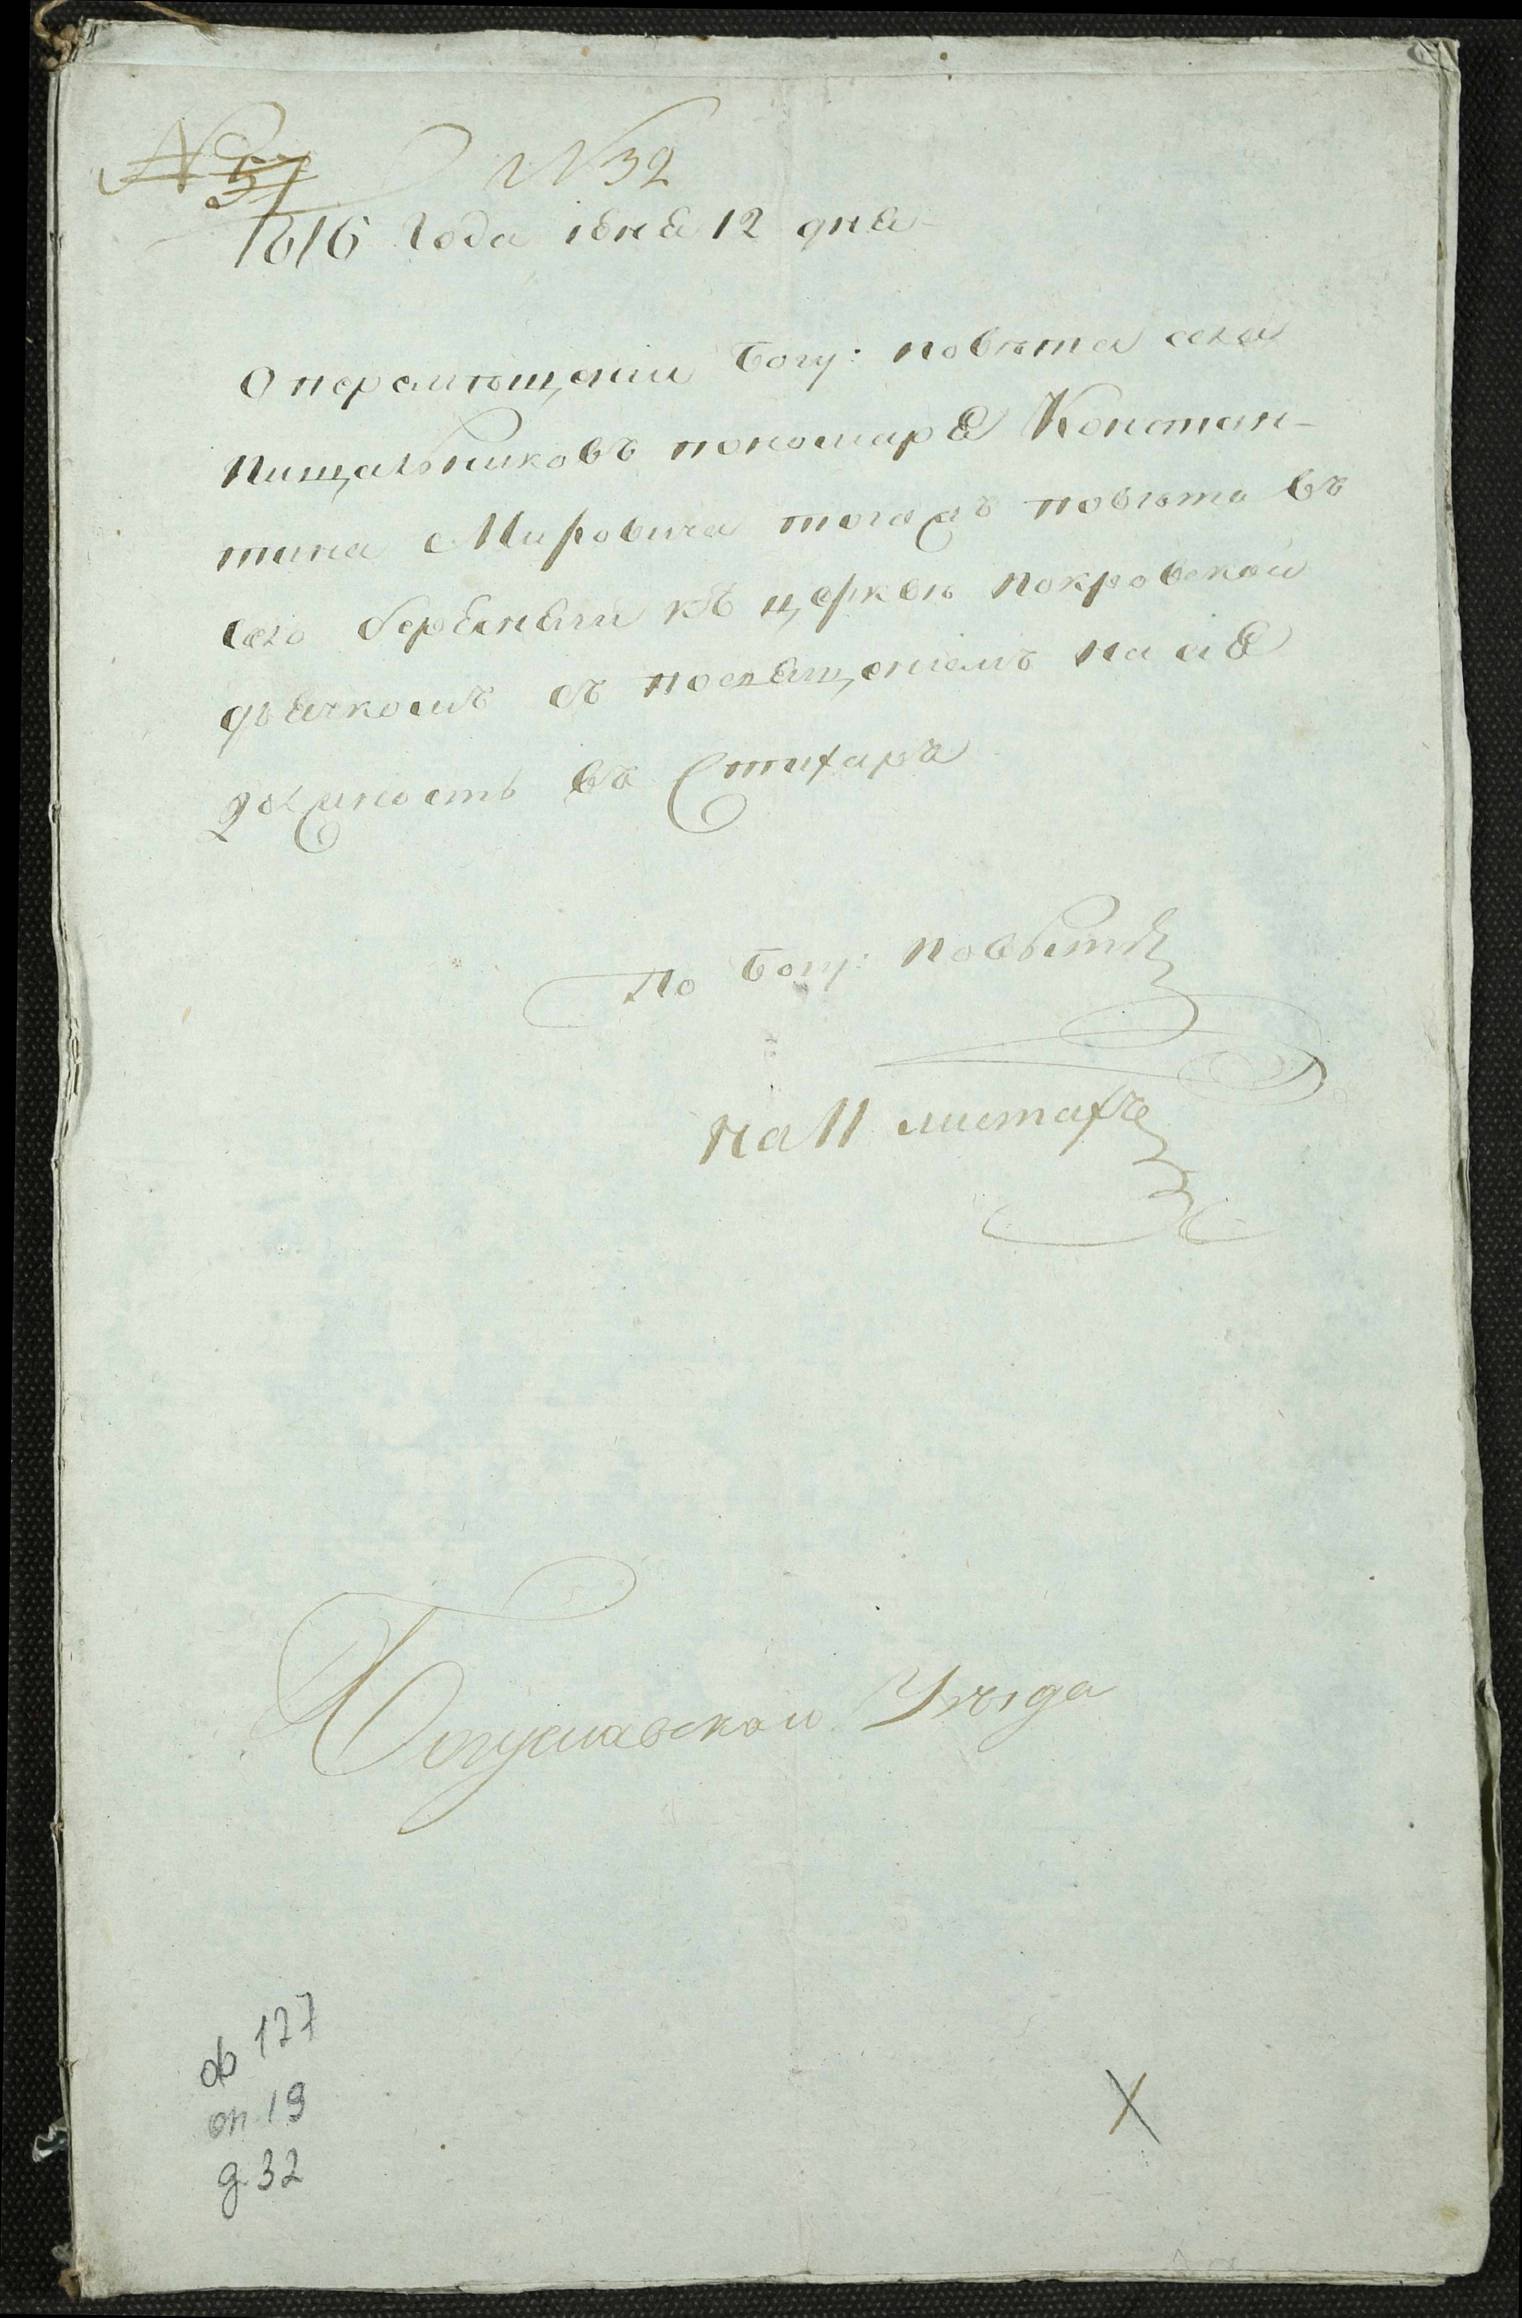 № 57
№ 32
1816 года іюня 12 дня
О перемѣщеніи Богу: повѣта села
Пищальниковъ пономаря Констан-
тина Мировича тогожъ повѣта въ
село къ церквѣ Покровской
дьячкомъ съ посвященіемъ на сію
должность въ Стихаръ
По Богу: повѣту
на 11 листахъ
Богуславского Уѣзда
ф 127
оп. 19
д. 32